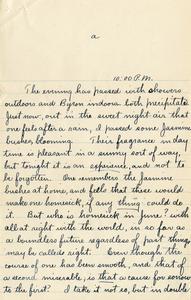 a
10:00 P.M.
The evening has passed with showers
outdoors and Byron indoors both precipitate
Just now, out in the sweet night air that
one feels after a rain, I passed some Jasmine
bushes blooming. Their fragrance in day
time is pleasant in a sunny sort of way,
but tonight it is an experience, and not to
be forgotten. One remembers the Jasmine
bushes at home, and feels that these would
make one homesick, if any thing could do
it. But who is homesick in June? with
all at right with the world, in so far as
a boundless future regardless of past things
may be called right. Even though the
course of one has been smooth, and that of
a second miserable, is that a cause for sorrow
to the first? I take it not so, but in double